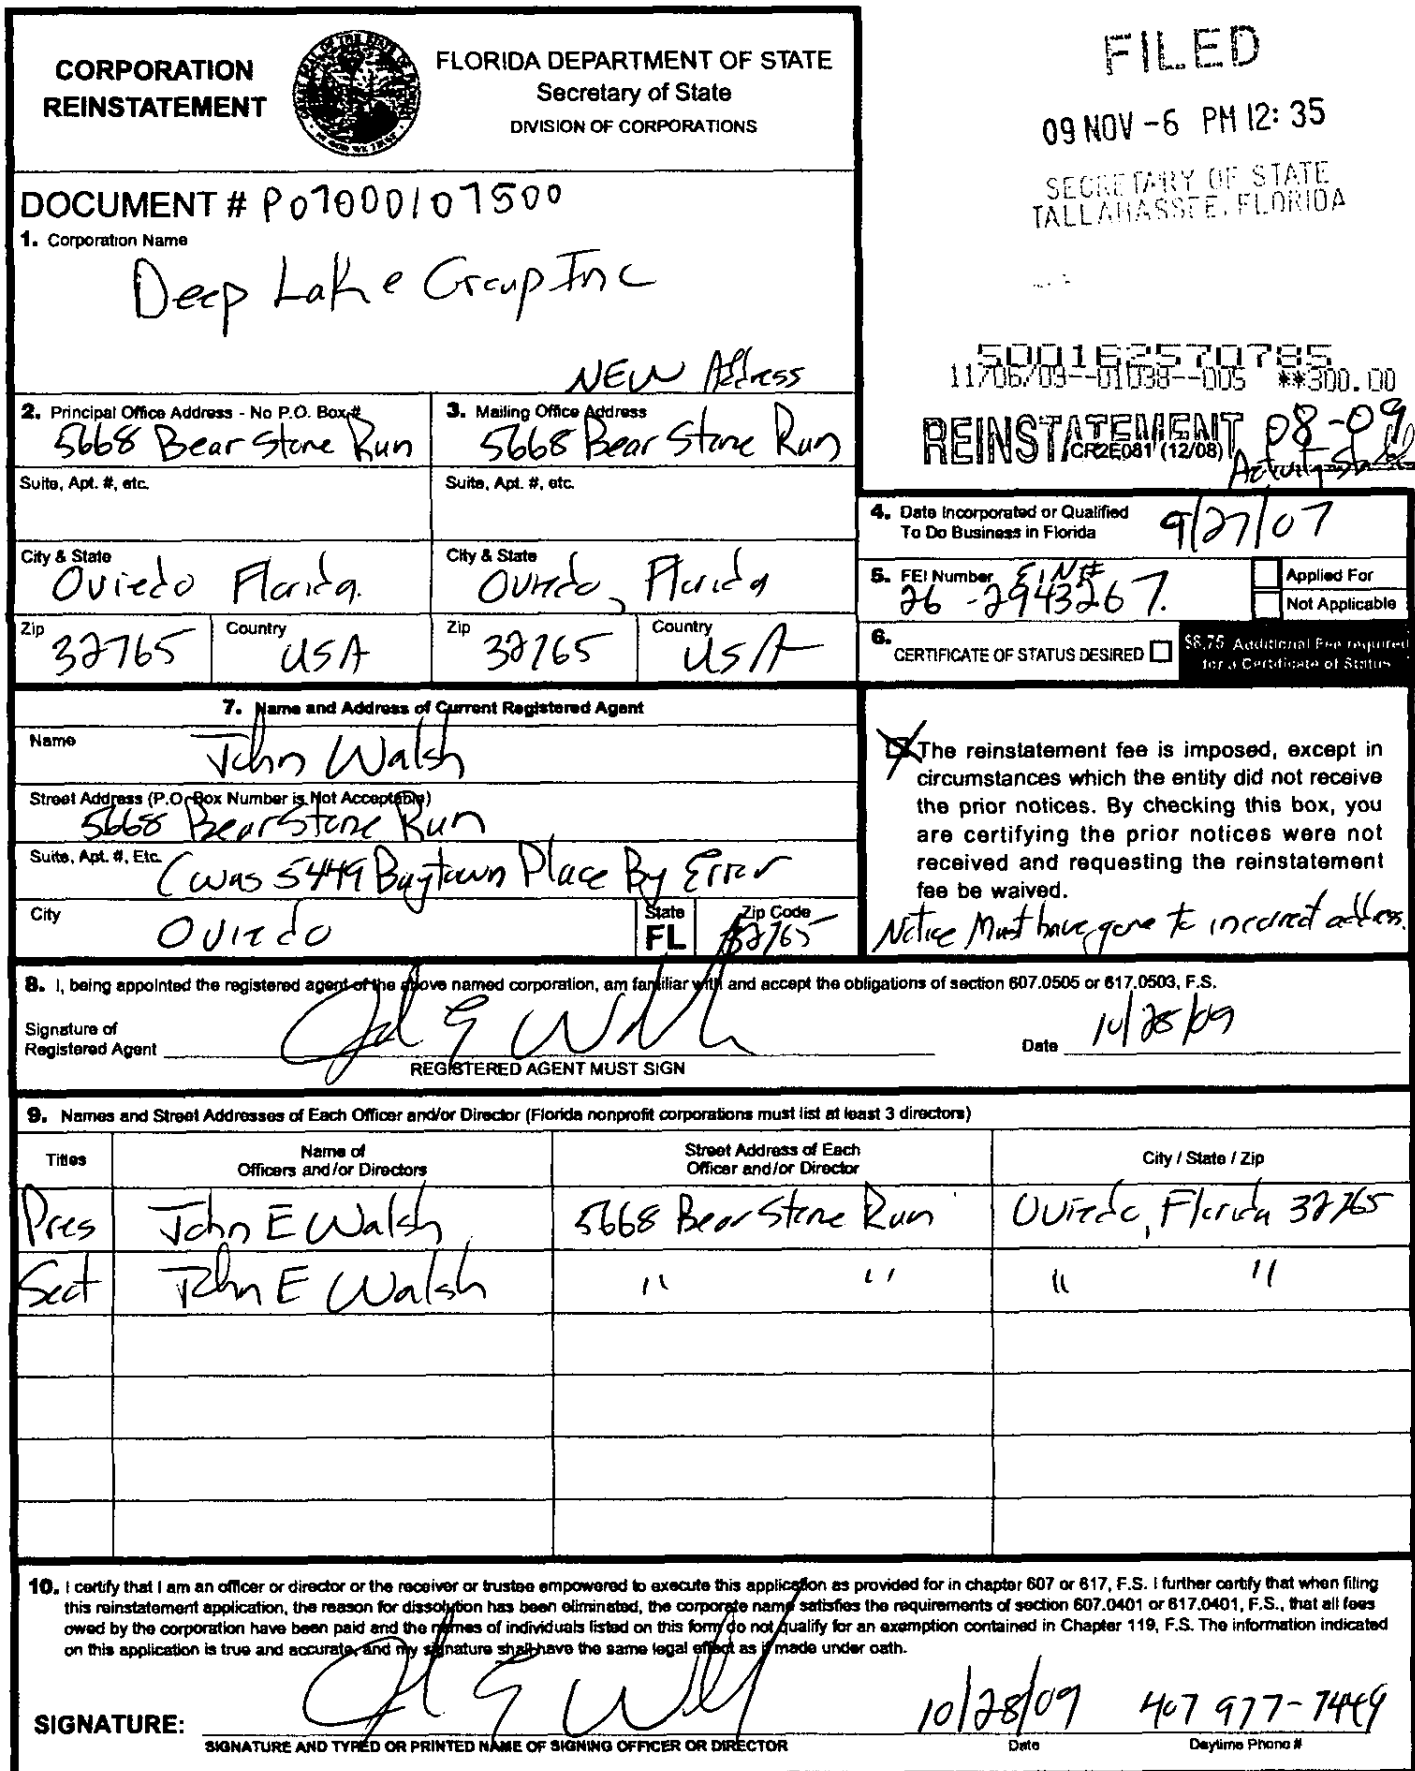 CORPORATION
REINSTATEMENT
FLORIDA DEPARTMENT OF STATE
Secretary of State
DIVISION OF CORPORATIONS
FILED
09 NOV -6 PM 12:35
SECRETARY OF STATE
TALLAHASSEE, FLORIDA
DOCUMENT # P07000107500
1. Corporation Name
Deep Lake Group Inc
NEW Address
500162570785
11/06/09--01038--005 **300.00
REINSTATEMENT 08-09
CR2E081 (12/08)
2. Principal Office Address - No P.O. Box #
5668 Bear Stone Run
3. Mailing Office Address
5668 Bear Stone Run
Suite, Apt. #, etc.
Suite, Apt. #, etc.
City & State
Oviedo Florida.
City & State
Oviedo, Florida
Zip
32765
Country
USA
Zip
32765
Country
USA
4. Date Incorporated or Qualified
To Do Business in Florida
9/27/07
5. FEI Number EIN#
26-2943267.
Applied For
Not Applicable
6. CERTIFICATE OF STATUS DESIRED
$8.75 Additional Fee required
for a Certificate of Status
7. Name and Address of Current Registered Agent
Name
John Walsh
Street Address (P.O. Box Number is Not Acceptable)
5668 Bear Stone Run
Suite, Apt. #, Etc.
(was 5449 Baytown Place By Error
City
Oviedo
State
FL
Zip Code
32765
The reinstatement fee is imposed, except in
circumstances which the entity did not receive
the prior notices. By checking this box, you
are certifying the prior notices were not
received and requesting the reinstatement
fee be waived.
Notice Must have gone to incorrect address.
8. I, being appointed the registered agent of the above named corporation, am familiar with and accept the obligations of section 607.0505 or 617.0503, F.S.
Signature of
Registered Agent
John E Walsh
Date 10/28/09
REGISTERED AGENT MUST SIGN
9. Names and Street Addresses of Each Officer and/or Director (Florida nonprofit corporations must list at least 3 directors)
Titles
Name of
Officers and/or Directors
Street Address of Each
Officer and/or Director
City / State / Zip
Pres John E Walsh 5668 Bear Stone Run Oviedo, Florida 32765
Sect John E Walsh " " " "
10. I certify that I am an officer or director or the receiver or trustee empowered to execute this application as provided for in chapter 607 or 617, F.S. I further certify that when filing
this reinstatement application, the reason for dissolution has been eliminated, the corporate name satisfies the requirements of section 607.0401 or 617.0401, F.S., that all fees
owed by the corporation have been paid and the names of individuals listed on this form do not qualify for an exemption contained in Chapter 119, F.S. The information indicated
on this application is true and accurate, and my signature shall have the same legal effect as if made under oath.
SIGNATURE: John E Walsh 10/28/09 407 977-7449
SIGNATURE AND TYPED OR PRINTED NAME OF SIGNING OFFICER OR DIRECTOR
Date
Daytime Phone #